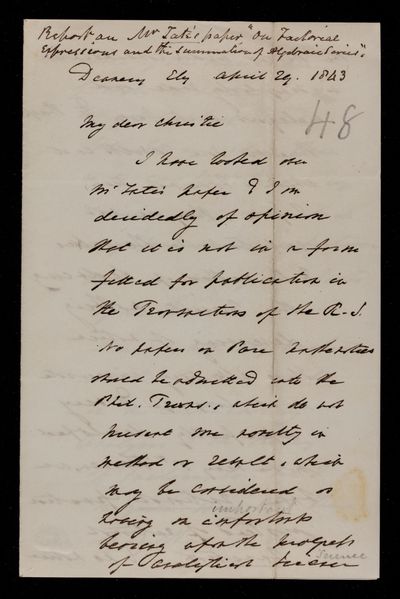 Report on Mr Tate's paper "On Factorial
Expressions and the Summation of Algebraic Series".
Deanery Ely April 29. 1843
48
My dear Christie
I have looked over
Mr Tate's paper & I am
decidedly of opinion
that it is not in a form
fitted for publication in
the Transactions of the R. S.
No papers on Pure Mathematics
should be admitted into the
Phil. Trans., which do not
present some novelty in
method or result, which
may be considered as
important
having an important
bearing upon the progress
Science
of analytical science